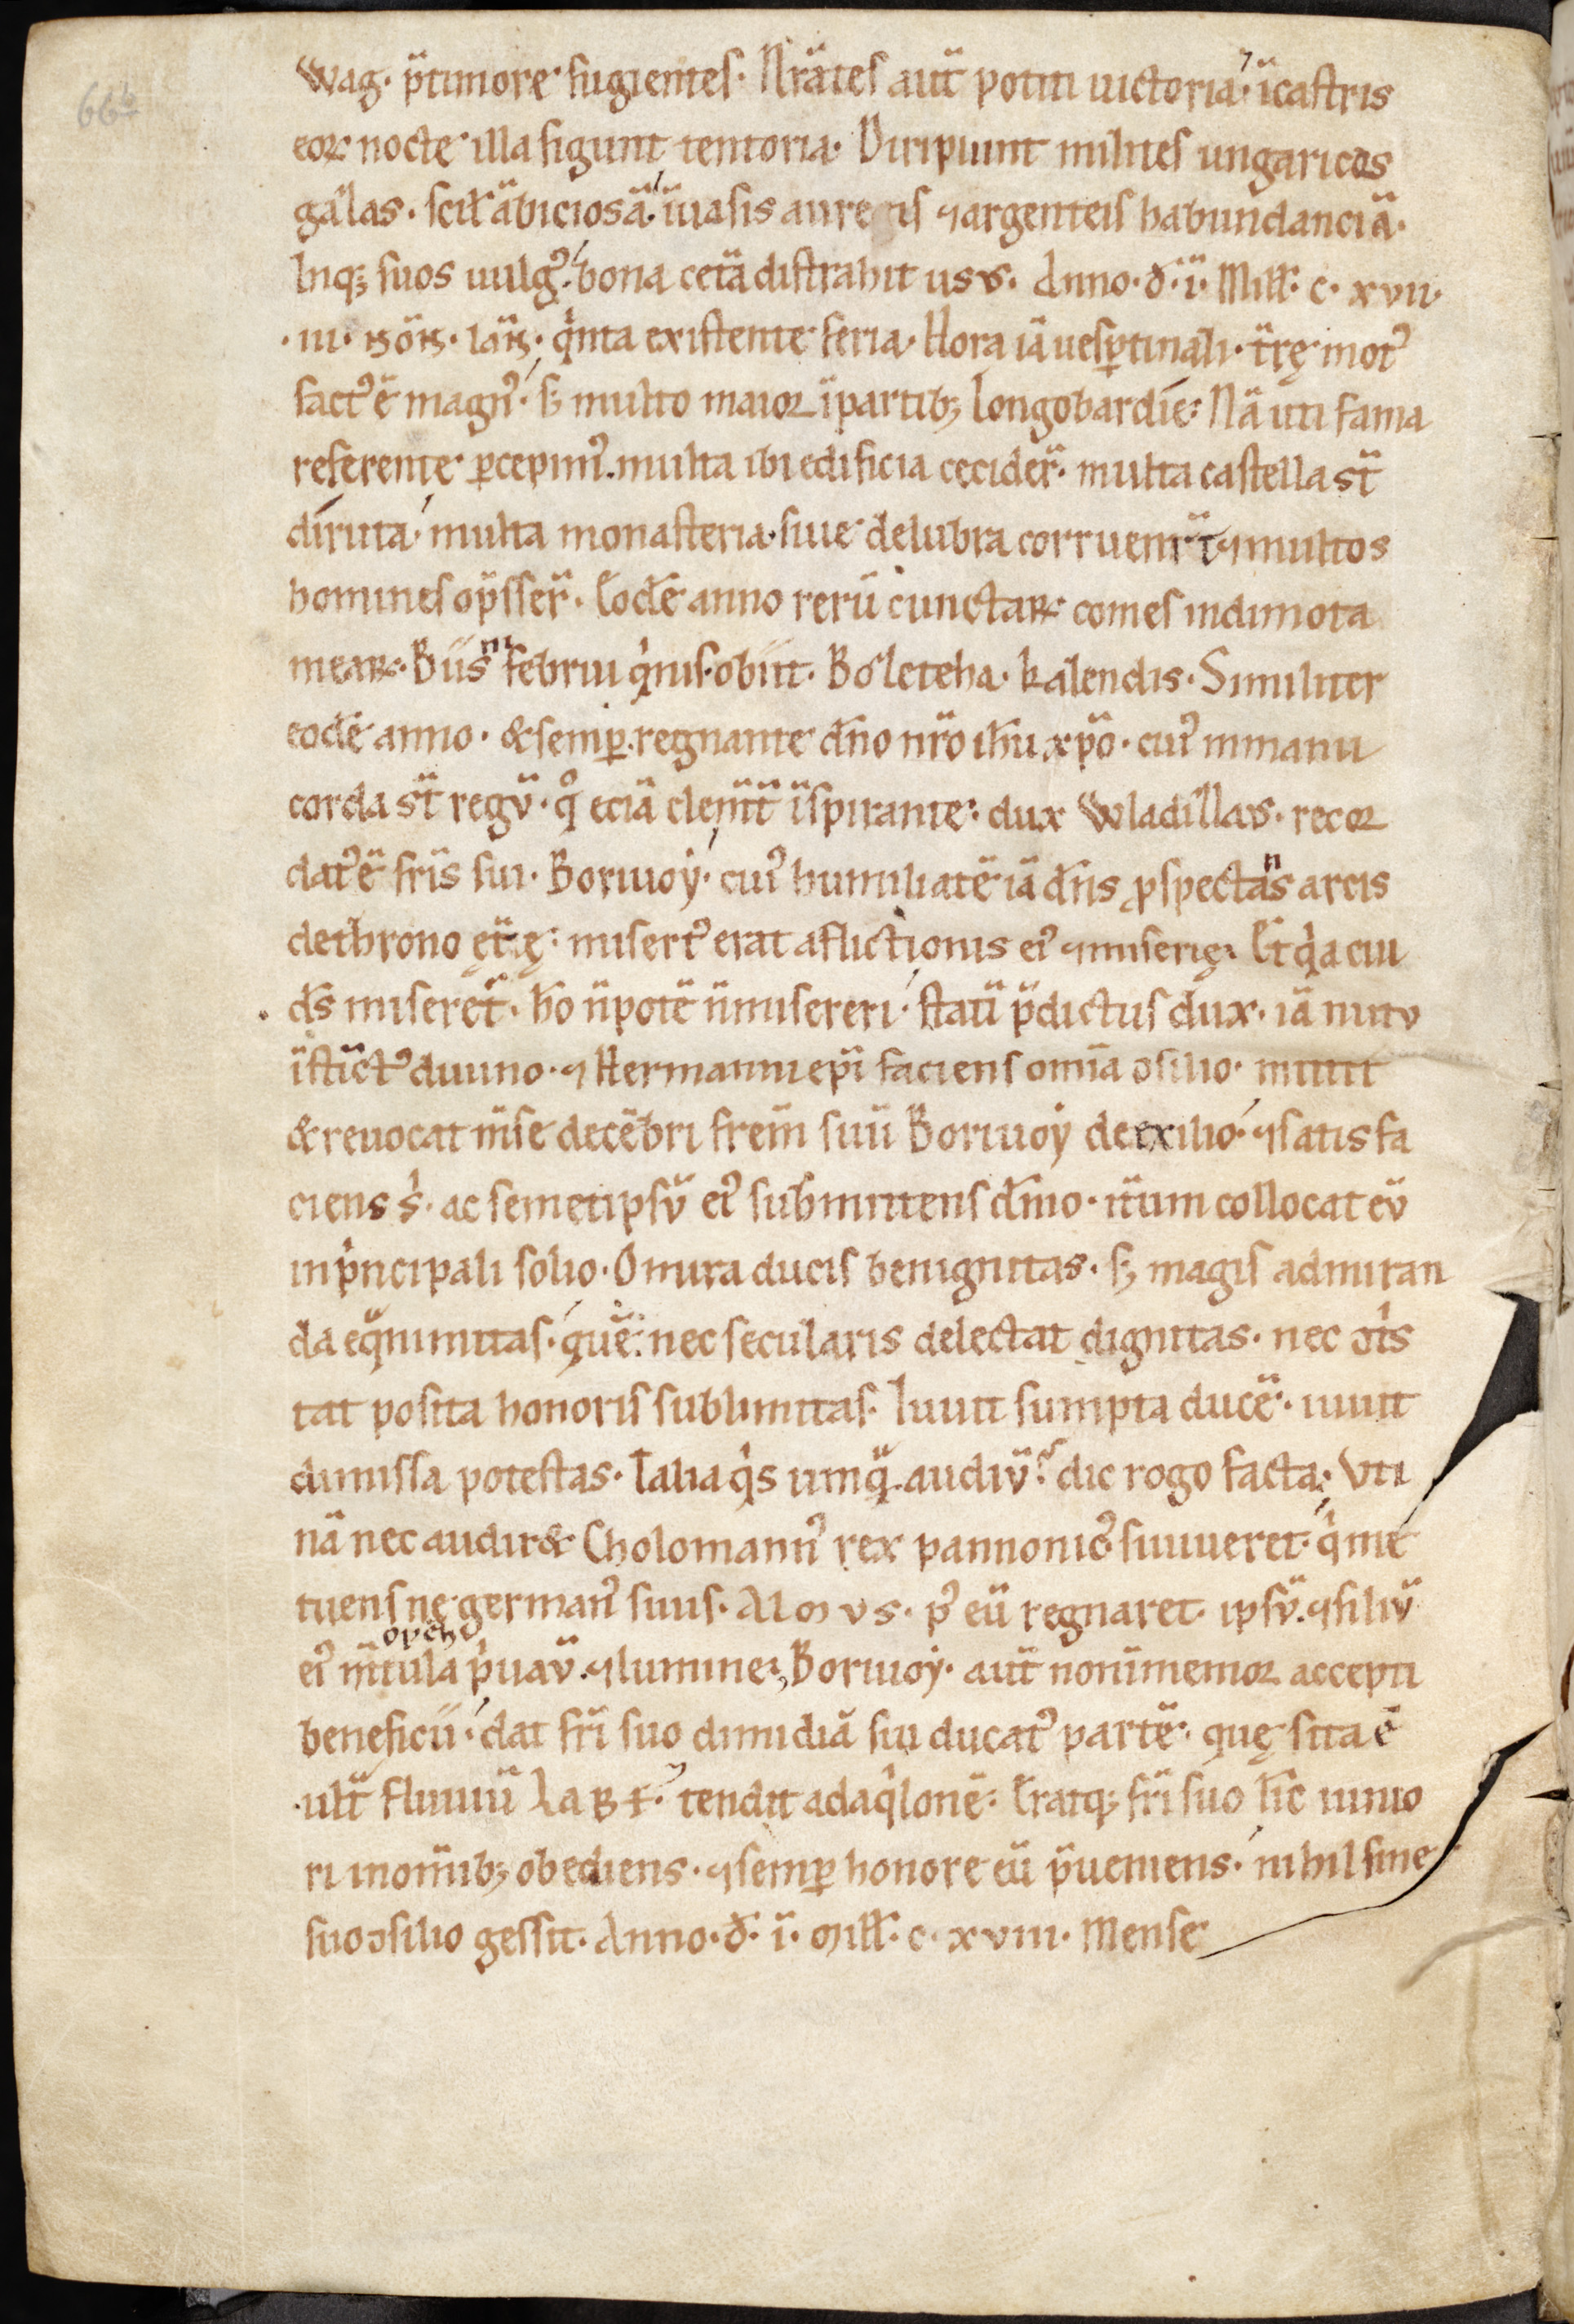 66b
Wag. p̄timore fugientes. Nr̄ātes aūt potiti uictoria. ⁊ ı̄castris
eoꝝ nocte illa figunt tentoria. Diripiunt milites ungaricas
gazas. scił ābiciosā. ı̄uasis aureis ⁊argenteis habundanciā.
Inq; suos uulgꝰ bona cetā distrahit usvs. Anno. đ. ı̄. Mill̄. c. xvii.
.iii. nōn. iān. qͥnta existente feria. Hora iā uesꝑtinali. tr̄ę motꝰ
factꝰ ē magnꝰ. s; multo maior ı̄partib; longobardie. Nā uti fama
referente ꝑcepimꝰ. multa ibi edificia cecider̄. multa castella st̄
diruta. multa monasteria. siue delubra corruer̄t ⁊multos
homines op̄sser̄. Eodē anno rerū cunctaꝝ comes indimota
meaꝝ. Biisnͫ februi qͥnis. obiit. Bosleteha. kalendis. Similiter
eodē anno. &semꝑ. regnante dn̄o nr̄o ih̄u xp̄o. cuiꝰ inmanu
corda st̄ regū. qͦ eciā clem̄t̄ ı̄spirante. dux Wladislavs. recor
datꝰ ē fr̄is sui. Boriuoy. cuiꝰ humiliatē iā dn̄s ꝓspectans arcis
dethrono ęt̄ę. misertꝰ erat afflictionis eiꝰ ⁊miserię. Et qͥa cui
ds̄ miseret᷑. hō n̄potē n̄misereri. statī p̄dictus dux. iā nutv
ı̄stı̄ctꝰ diuino. ⁊Hermanni ep̄i faciens om̄ia ↄsilio. mittit
&reuocat m̄se decēbri frēm suū Boriuoy deexilio. ⁊satisfa
ciens sͥ. ac semetipsū eiꝰ submittens dn̄io. it̄um collocat eū
inpͥncipali solio. O mira ducis benignitas. s; magis admiran
da eqͣnimitas. quē. nec secularis delectat dignitas. nec ↄtͥs
tat posita honoris sublimitas. Iuuit sumpta ducē. iuuit
dimissa potestas. Talia qͥs umqͣ audiū᷑ dic rogo facta. Vti
nā nec audir& Cholomannꝰ rex pannonicꝰ siuiueret. qͥ me
tuens ne germanꝰ suus. ALMVS. pꝰ eū regnaret. ipsū. ⁊filiū
eiꝰ m̄tula pͥuaū. ⁊lumine. Boriuoy. aūt nonimmemor accepti
beneficii. dat fr̄i suo dimidiā sui ducatꝰ partē. quę sita ē
.ult̄ fluuiū LABE. ⁊ tendit adaqͥlonē. Eratq; fr̄i suo lic̄ iunio
ri inom̄ib; obediens. ⁊semꝑ honore eū p̄ueniens. nihil sine
suo ↄsilio gessit. Anno. đ. ı̄. mill̄. c. xviii. Mense